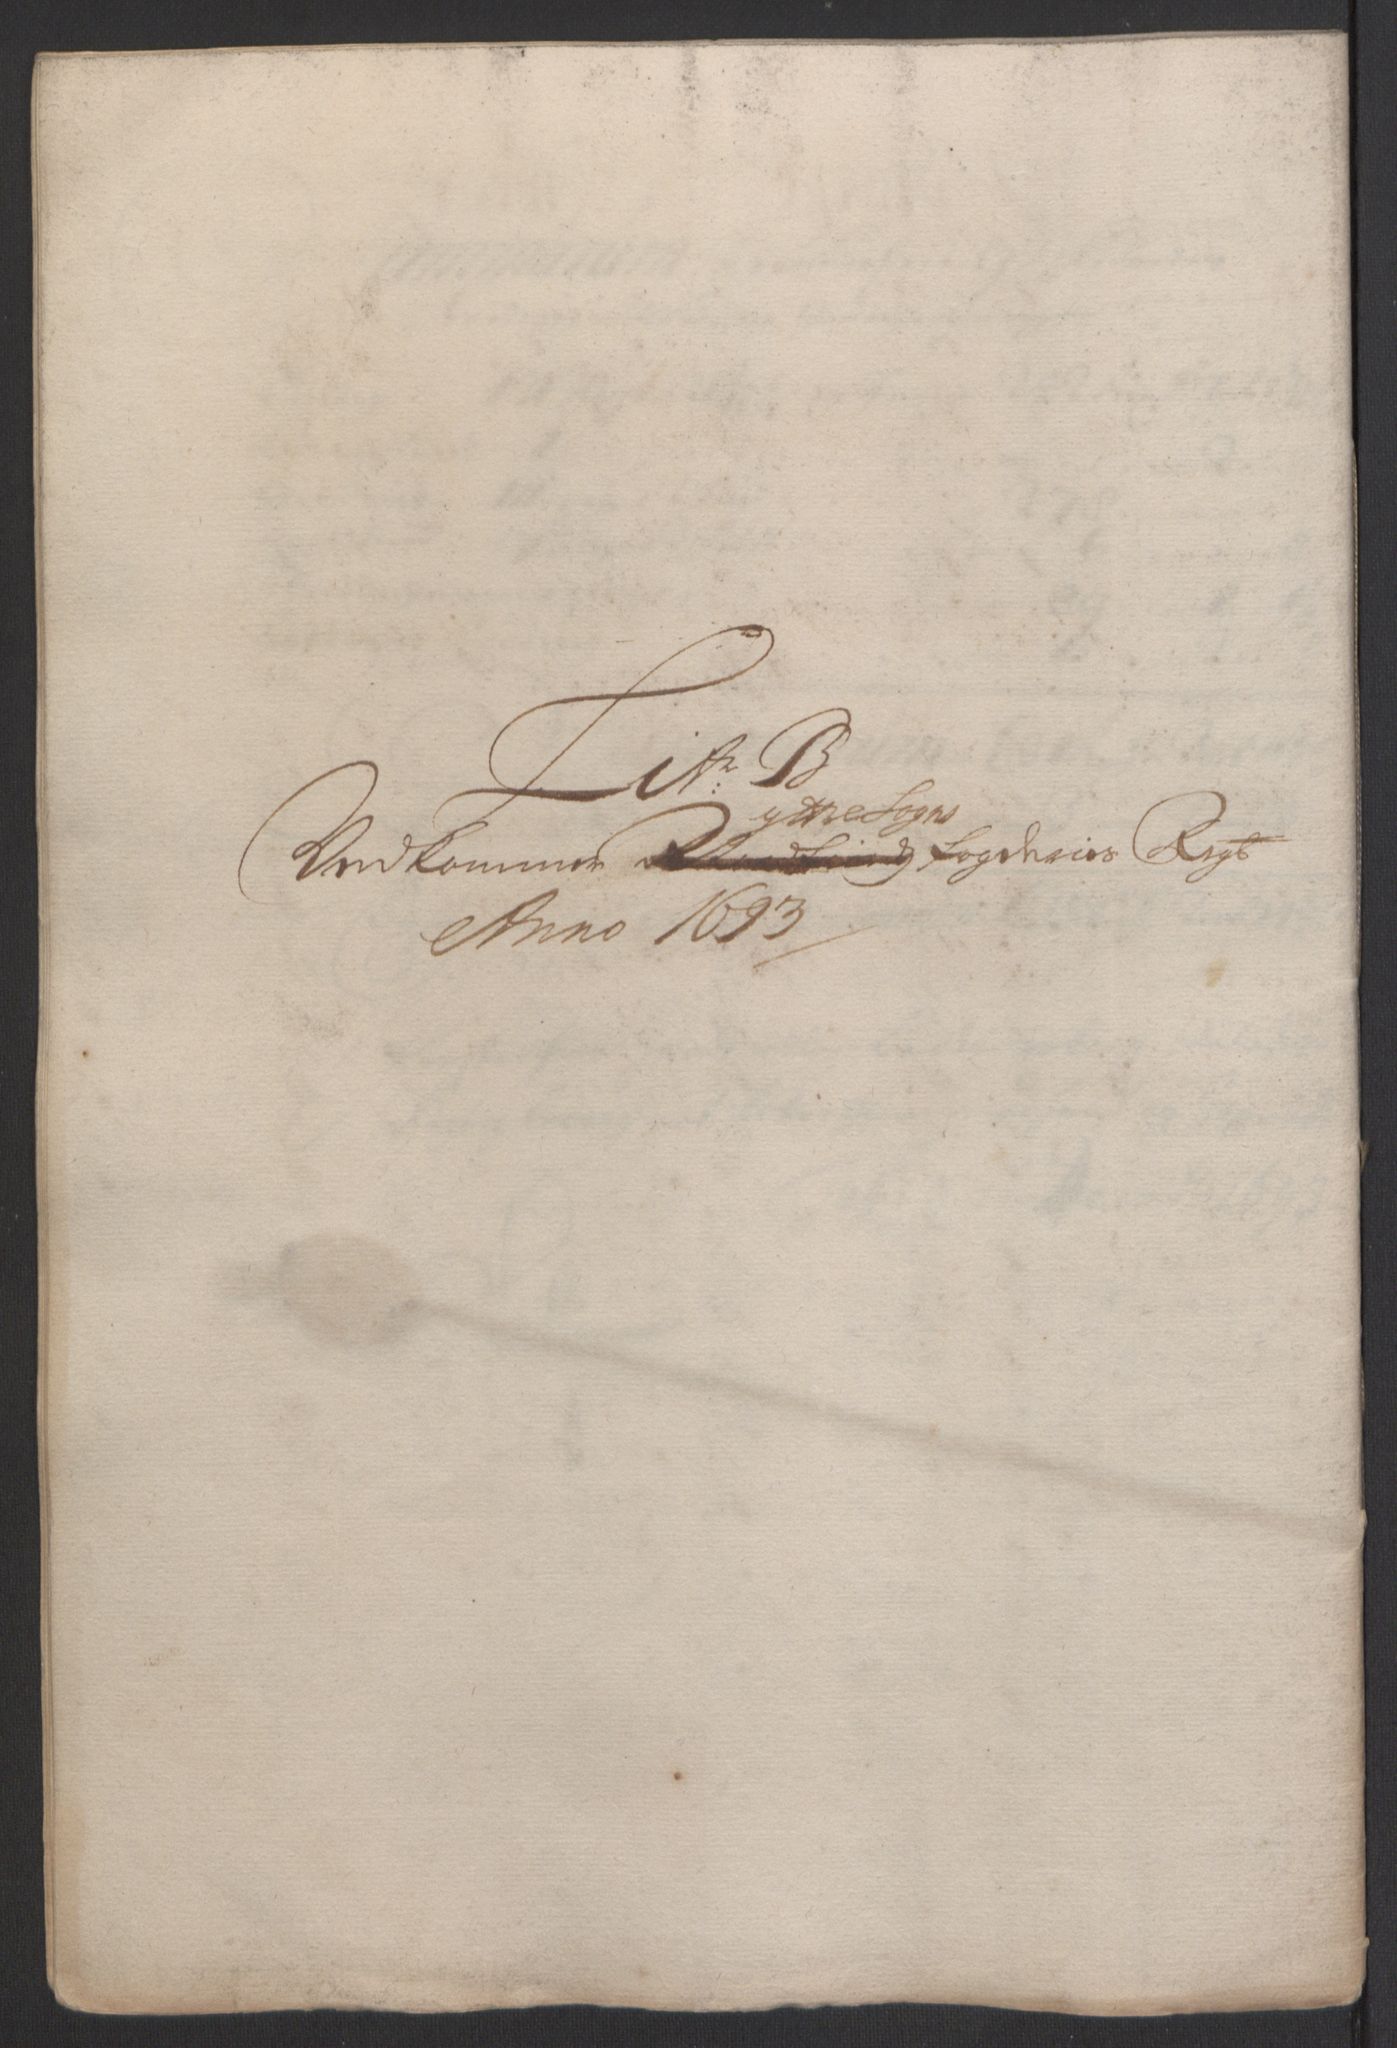 Litr: B
yttre Sogns
Vedkommer Fogderies Regb
Anno 1693